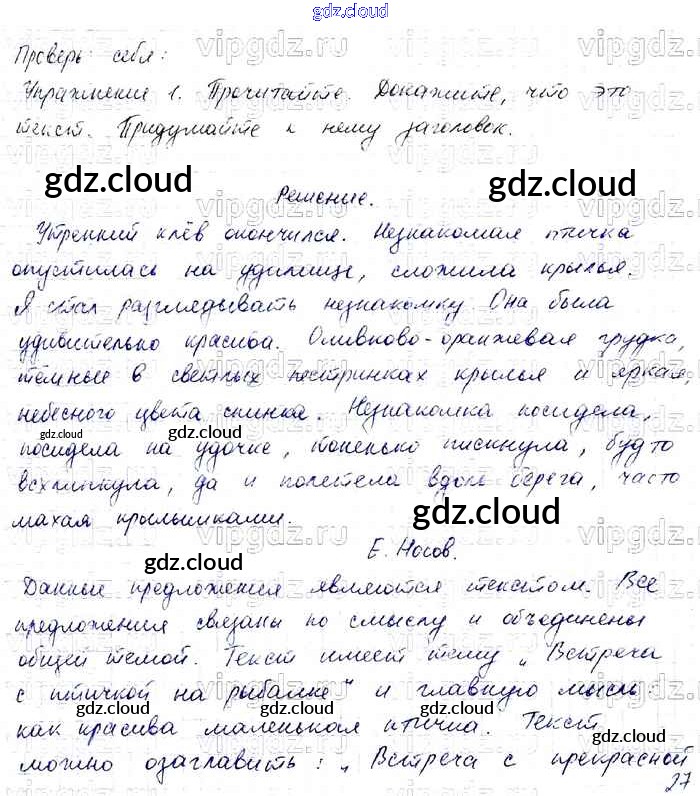 gdz.cloud
Проверь себя:
Упражнение 1. Прочитайте. Докажите, что это
текст. Придумайте к нему заголовок.
gdz.cloud
gdz.cloud
Решение.
Утренний клёв окончился. Незнакомая птичка
опустилась на удилище, сложила крылья.
Я стал разглядывать незнакомку Она была
удивительно красива. Оливково-оранжевая грудка,
тёмные в светлых пестринках крылья и яркая
небесного цвета спинка. Незнакомка посидела,
gdz.cloud
gdz.cloud
посидела на удочке, тоненько пискнула, будто
всхлипнула, да и полетела вдоль берега, часто
махая крылышками.
gdz.cloud
Е. Носов.
gdz.cloud
gdz.cloud
Данные предложения являются текстом. Все
предложения связаны по смыслу и объединены
общей темой. Текст имеет тему „Встреча
с птичкой на рыбалке" и главную мысль:
gdz.cloud
как красива маленькая птичка. Текст
gdz.cloud
gdz.cloud
можно озаглавить: „Встреча с прекрасной
27